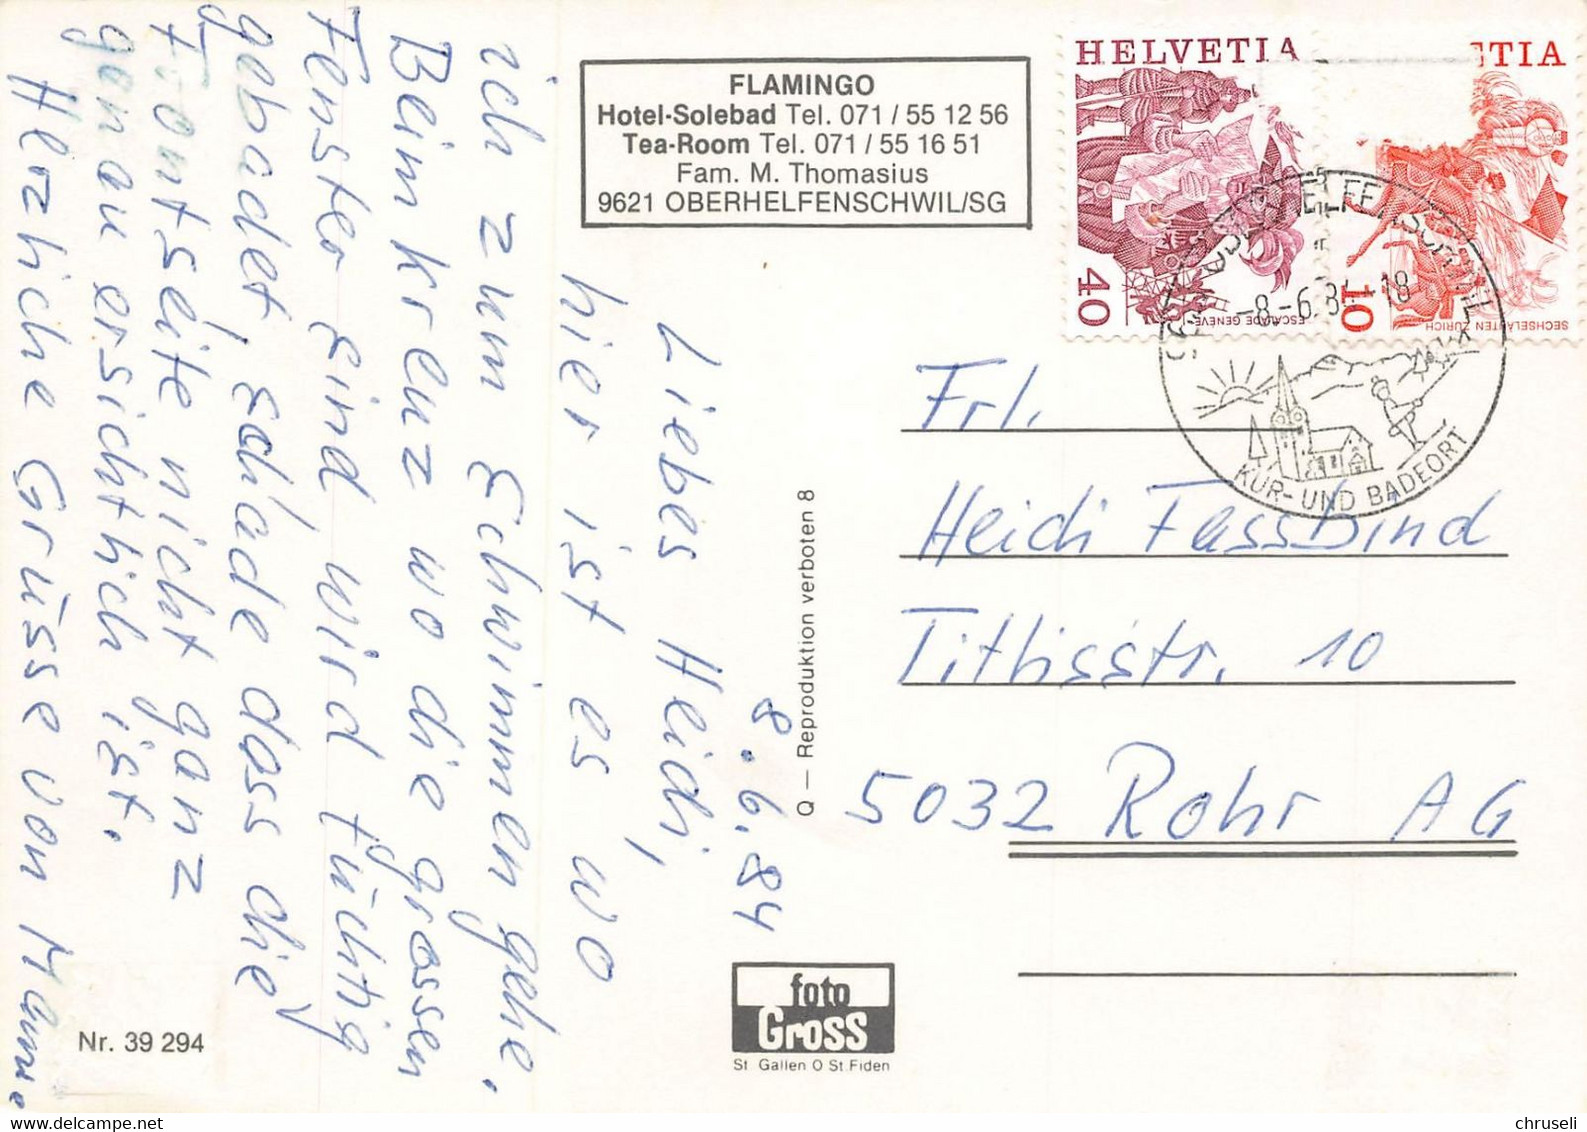 FLAMINGO
Hotel-Solebad Tel. 071 / 55 12 56
Tea-Room Tel. 071 / 55 16 51
Fam. M. Thomasius
9621 OBERHELFENSCHWIL/SG
HELVETIA
40
ESCALADE GENÈVE
ETIA
10
SECHSELÄUTEN ZÜRICH
OBERHELFENSCHWIL
-8.-6.84-18
KUR- UND BADEORT
8.6.84
Liebes Heidi,
hier ist es wo
ich zum schwimmen gehe.
Beim Kreuz wo die grossen
Fenster sind, wird tüchtig
gebadet, schade dass die
Frontseite nicht ganz
genau ersichtlich ist.
Herzliche Grüsse von Mami.
Frl.
Heidi Fassbind
Titlisstr. 10
5032 Rohr AG
Q — Reproduktion verboten 8
foto
Gross
St. Gallen O St. Fiden
Nr. 39 294
chruseli